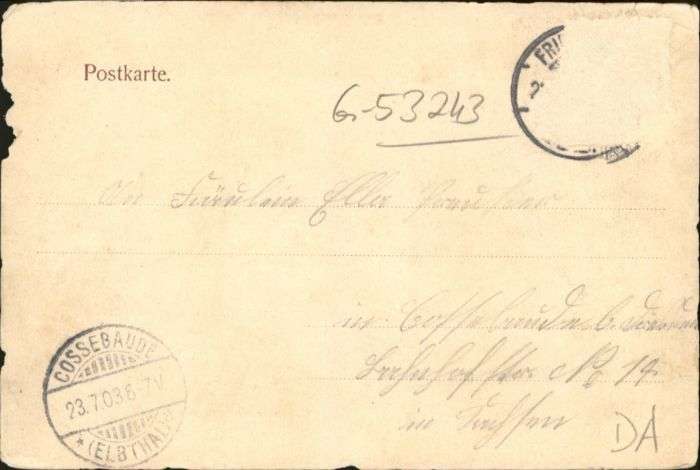 Postkarte.
FRI
2
G-53243
An Fräulein Ella
in Cossebaude b. Dresden
Bahnhofstr. No 14
in Sachsen
COSSEBAUDE
23.7.03.6-7V
*(ELBTHAL)*
DA